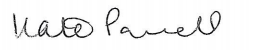 Kate Parnell